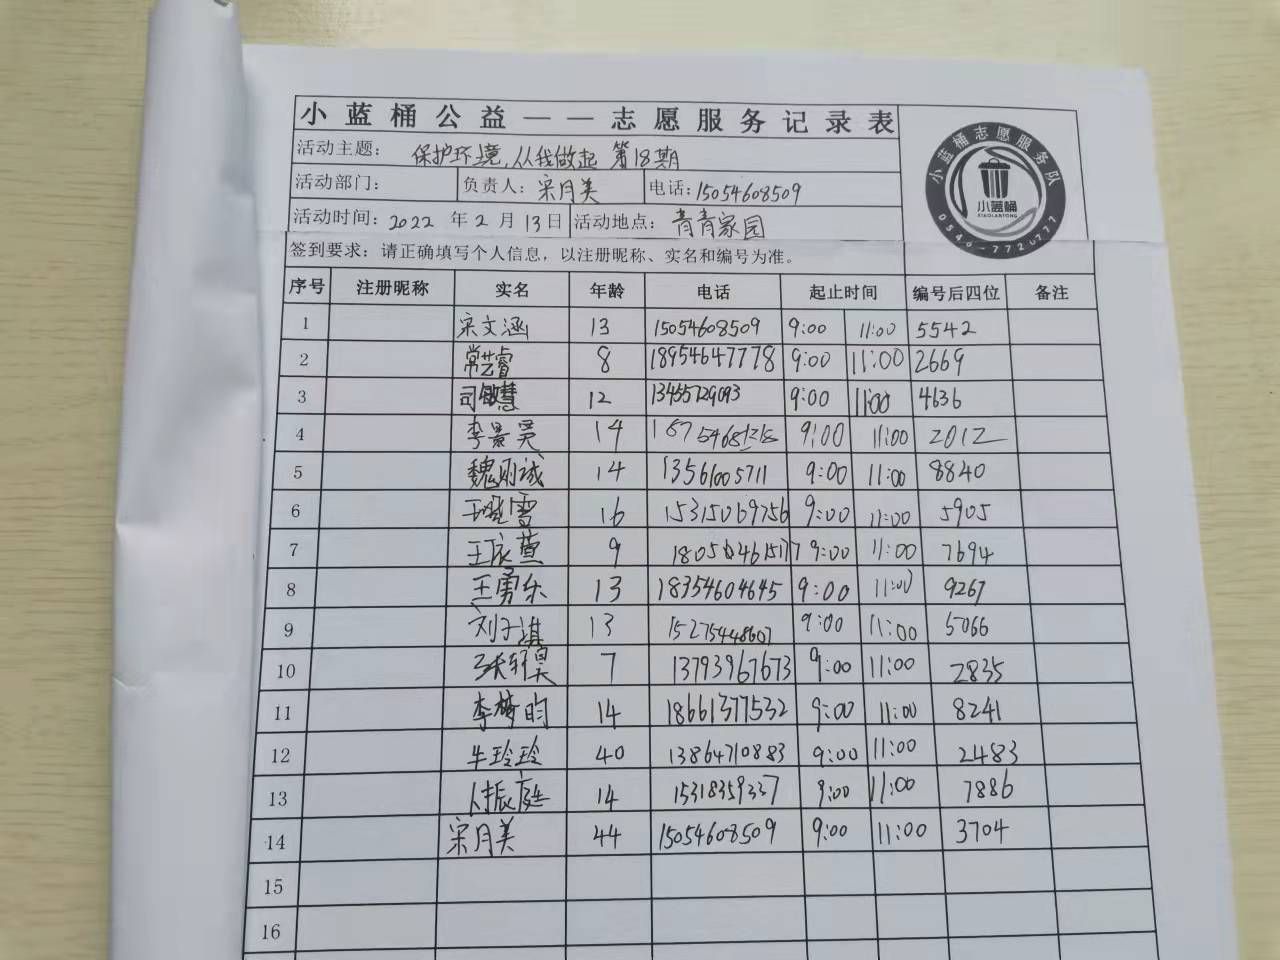 小蓝桶公益——志愿服务记录表
活动主题: 保护环境,从我做起 第18期
活动部门: 负责人: 宋月美 电话: 15054608509
活动时间: 2022 年 2 月 13 日 活动地点: 青青家园
签到要求: 请正确填写个人信息, 以注册昵称、实名和编号为准。
小蓝桶志愿服务队
小蓝桶
XIAOLANTONG
0546-7720777
序号 注册昵称 实名 年龄 电话 起止时间 编号后四位 备注
1 宋文涵 13 15054608509 9:00 11:00 5542
2 常艺睿 8 18954647778 9:00 11:00 2669
3 司敏慧 12 13455729093 9:00 11:00 4636
4 李景昊 14 9:00 11:00 2012
5 魏雨诚 14 13561005711 9:00 11:00 8840
6 王晓雪 16 15315069756 9:00 11:00 5905
7 王依萱 9 9:00 11:00 7694
8 王勇乐 13 18354604645 9:00 11:00 9267
9 刘子淇 13 15275448607 9:00 11:00 5066
10 张轩昊 7 13793967673 9:00 11:00 2835
11 李梅昀 14 18661377532 9:00 11:00 8241
12 牛玲玲 40 13864710883 9:00 11:00 2483
13 振庭 14 15318359337 9:00 11:00 7886
14 宋月美 44 15054608509 9:00 11:00 3704
15
16